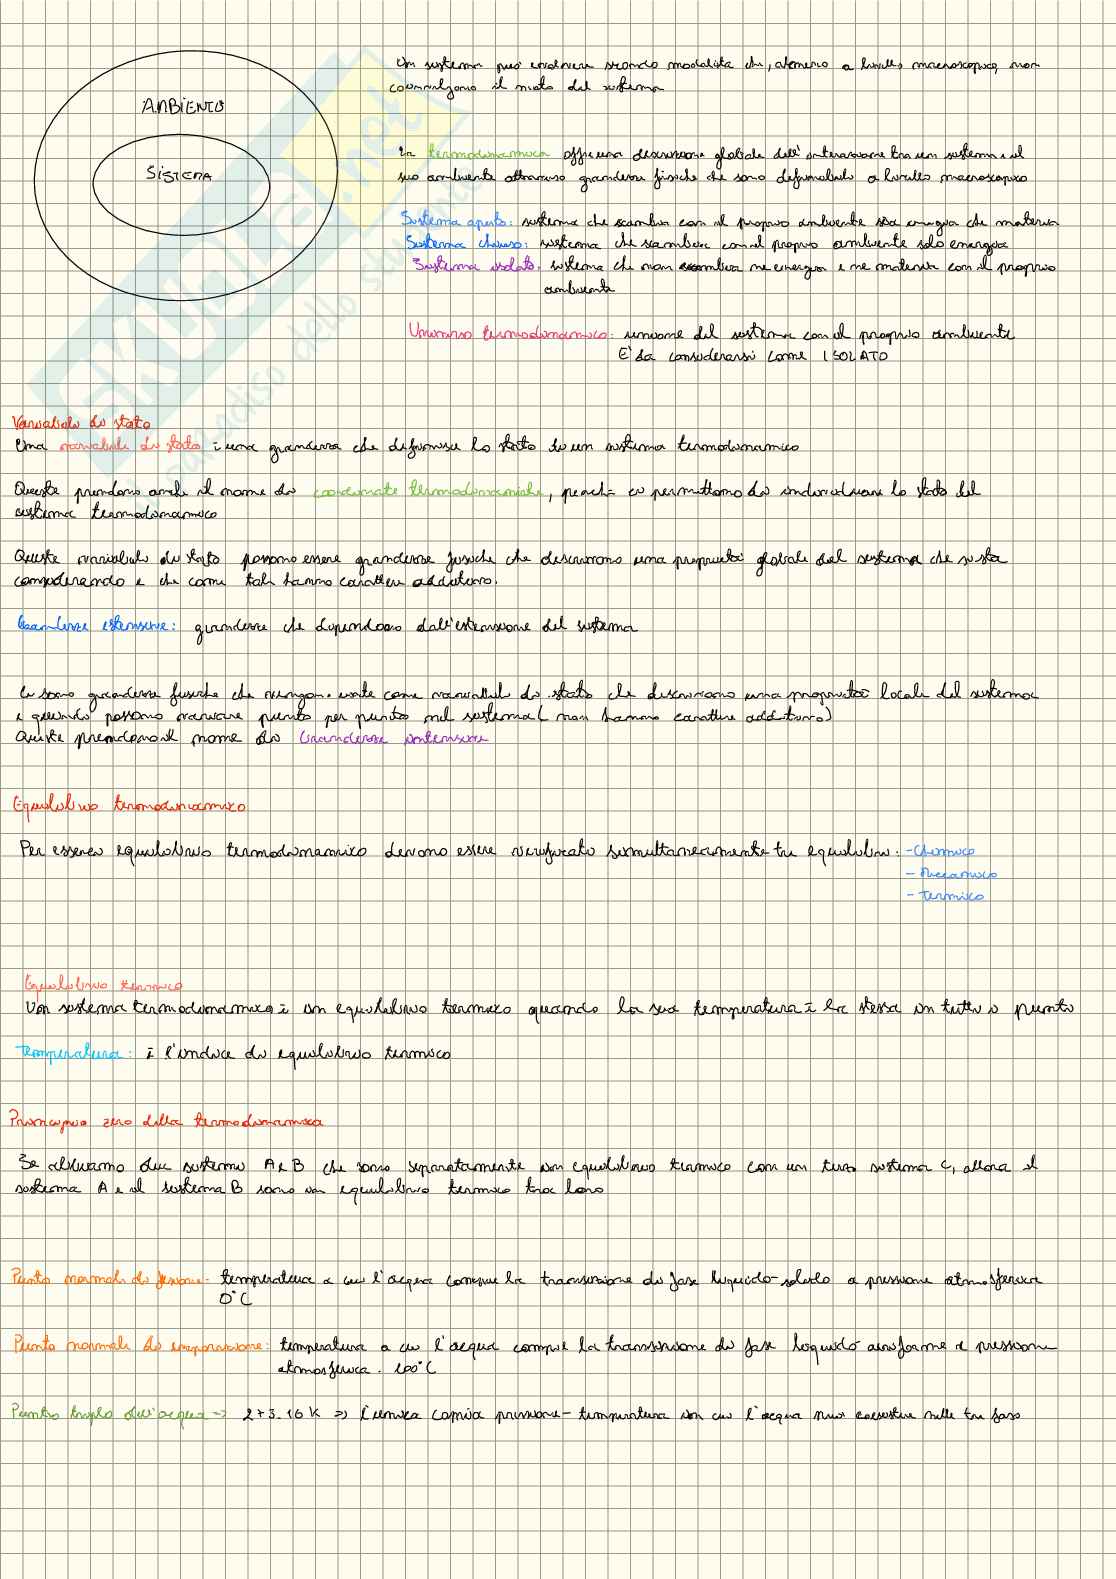 AMBIENTE
SISTEMA
Un sistema può evolvere secondo modalità che, almeno a livello macroscopico, non
coinvolgono il moto del sistema
La termodinamica offre una descrizione globale dell'interazione tra un sistema e il
suo ambiente attraverso grandezze fisiche che sono definibili a livello macroscopico
Sistema aperto: sistema che scambia con il proprio ambiente sia energia che materia
Sistema chiuso: sistema che scambia con il proprio ambiente solo energia
Sistema isolato: sistema che non scambia ne energia e ne materia con il proprio
ambiente
Universo termodinamico: unione del sistema con il proprio ambiente
E' da considerarsi come ISOLATO
SKUOLA.net
paradiso dello studente
Variabili di stato
Una variabile di stato è una grandezza che definisce lo stato di un sistema termodinamico
Queste prendono anche il nome di coordinate termodinamiche, perchè ci permettono di individuare lo stato del
sistema termodinamico
Queste variabili di stato possono essere grandezze fisiche che descrivono una proprietà globale del sistema che si sta
considerando e che come tali hanno carattere additivo.
Grandezze estensive: grandezze che dipendono dall'estensione del sistema
Ci sono grandezze fisiche che vengono usate come variabili di stato che descrivono una proprietà locale del sistema
e quindi possono variare punto per punto nel sistema (non hanno carattere additivo)
Queste prendono il nome di Grandezze intensive
Equilibrio termodinamico
Per esserci equilibrio termodinamico devono essere verificati simultaneamente tre equilibri: - Chimico
- Meccanico
- Termico
Equilibrio termico
Un sistema termodinamico è in equilibrio termico quando la sua temperatura è la stessa in tutti i punti
Temperatura: è l'indice di equilibrio termico
Principio zero della termodinamica
Se abbiamo due sistemi A e B che sono separatamente in equilibrio termico con un terzo sistema C, allora il
sistema A e il sistema B sono in equilibrio termico tra loro
Punto normale di fusione: temperatura a cui l'acqua compie la transizione di fase liquido-solido a pressione atmosferica
0°C
Punto normale di evaporazione: temperatura a cui l'acqua compie la transizione di fase liquido aeriforme a pressione
atmosferica. 100°C
Punto triplo dell'acqua → 273.16 K ⇒ l'unica coppia pressione-temperatura in cui l'acqua può coesistere nelle tre fasi